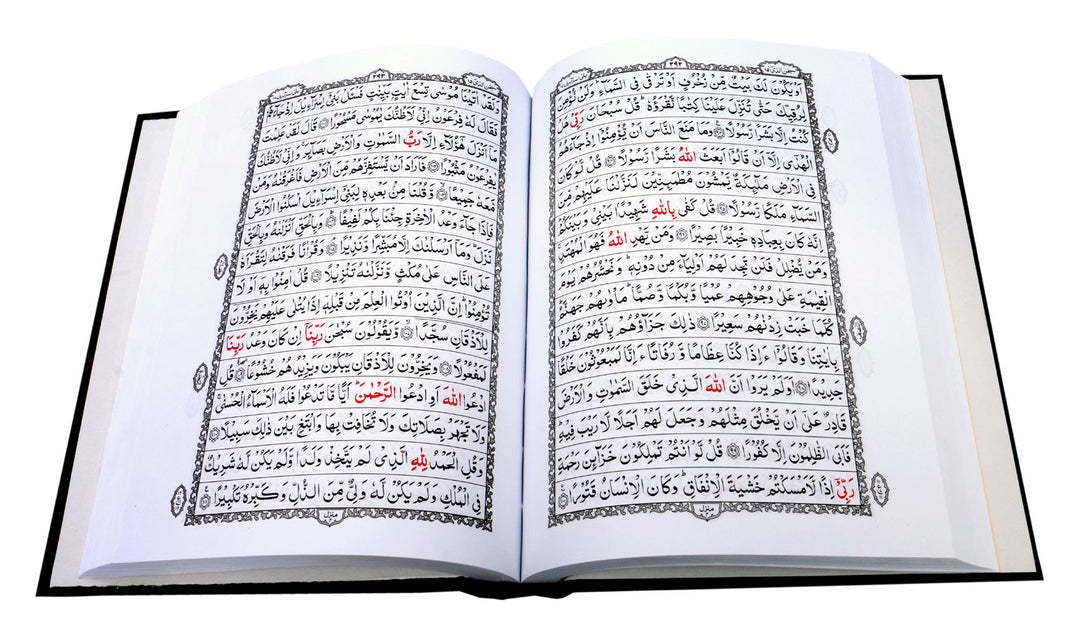 ٢٩٢
اَوْ يَكُوْنَ لَكَ بَيْتٌ مِّنْ زُخْرُفٍ اَوْ تَرْقٰى فِى السَّمَآءِ ؕ وَلَنْ نُّؤْمِنَ
لِرُقِيِّكَ حَتّٰى تُنَزِّلَ عَلَيْنَا كِتٰبًا نَّقْرَؤُهٗ ؕ قُلْ سُبْحَانَ رَبِّىْ هَلْ
كُنْتُ اِلَّا بَشَرًا رَّسُوْلًا ۟ وَمَا مَنَعَ النَّاسَ اَنْ يُّؤْمِنُوْۤا اِذْ جَآءَهُمُ
الْهُدٰٓى اِلَّاۤ اَنْ قَالُوْۤا اَبَعَثَ اللّٰهُ بَشَرًا رَّسُوْلًا ۟ قُلْ لَّوْ كَانَ
فِى الْاَرْضِ مَلٰٓئِكَةٌ يَّمْشُوْنَ مُطْمَئِنِّيْنَ لَنَزَّلْنَا عَلَيْهِمْ مِّنَ
السَّمَآءِ مَلَكًا رَّسُوْلًا ۟ قُلْ كَفٰى بِاللّٰهِ شَهِيْدًۢا بَيْنِىْ وَبَيْنَكُمْ ؕ
اِنَّهٗ كَانَ بِعِبَادِهٖ خَبِيْرًۢا بَصِيْرًا ۟ وَمَنْ يَّهْدِ اللّٰهُ فَهُوَ الْمُهْتَدِ ۚ
وَمَنْ يُّضْلِلْ فَلَنْ تَجِدَ لَهُمْ اَوْلِيَآءَ مِنْ دُوْنِهٖ ؕ وَنَحْشُرُهُمْ يَوْمَ
الْقِيٰمَةِ عَلٰى وُجُوْهِهِمْ عُمْيًا وَّبُكْمًا وَّصُمًّا ؕ مَاْوٰىهُمْ جَهَنَّمُ ؕ
كُلَّمَا خَبَتْ زِدْنٰهُمْ سَعِيْرًا ۟ ذٰلِكَ جَزَآؤُهُمْ بِاَنَّهُمْ كَفَرُوْا
بِاٰيٰتِنَا وَقَالُوْۤا ءَاِذَا كُنَّا عِظَامًا وَّرُفَاتًا ءَاِنَّا لَمَبْعُوْثُوْنَ خَلْقًا
جَدِيْدًا ۟ اَوَلَمْ يَرَوْا اَنَّ اللّٰهَ الَّذِىْ خَلَقَ السَّمٰوٰتِ وَالْاَرْضَ
قَادِرٌ عَلٰٓى اَنْ يَّخْلُقَ مِثْلَهُمْ وَجَعَلَ لَهُمْ اَجَلًا لَّا رَيْبَ فِيْهِ ؕ
فَاَبَى الظّٰلِمُوْنَ اِلَّا كُفُوْرًا ۟ قُلْ لَّوْ اَنْتُمْ تَمْلِكُوْنَ خَزَآئِنَ رَحْمَةِ
رَبِّىْۤ اِذًا لَّاَمْسَكْتُمْ خَشْيَةَ الْاِنْفَاقِ ؕ وَكَانَ الْاِنْسَانُ قَتُوْرًا ۟
منزل
٢٩٣
وَلَقَدْ اٰتَيْنَا مُوْسٰى تِسْعَ اٰيٰتٍۢ بَيِّنٰتٍ فَسْئَلْ بَنِىْۤ اِسْرَآءِيْلَ اِذْ جَآءَهُمْ
فَقَالَ لَهٗ فِرْعَوْنُ اِنِّىْ لَاَظُنُّكَ يٰمُوْسٰى مَسْحُوْرًا ۟ قَالَ لَقَدْ عَلِمْتَ
مَاۤ اَنْزَلَ هٰٓؤُلَآءِ اِلَّا رَبُّ السَّمٰوٰتِ وَالْاَرْضِ بَصَآئِرَ ۚ وَاِنِّىْ لَاَظُنُّكَ
يٰفِرْعَوْنُ مَثْبُوْرًا ۟ فَاَرَادَ اَنْ يَّسْتَفِزَّهُمْ مِّنَ الْاَرْضِ فَاَغْرَقْنٰهُ وَمَنْ
مَّعَهٗ جَمِيْعًا ۟ وَّقُلْنَا مِنْۢ بَعْدِهٖ لِبَنِىْۤ اِسْرَآءِيْلَ اسْكُنُوا الْاَرْضَ
فَاِذَا جَآءَ وَعْدُ الْاٰخِرَةِ جِئْنَا بِكُمْ لَفِيْفًا ۟ وَبِالْحَقِّ اَنْزَلْنٰهُ وَبِالْحَقِّ
نَزَلَ ؕ وَمَاۤ اَرْسَلْنٰكَ اِلَّا مُبَشِّرًا وَّنَذِيْرًا ۟ وَقُرْاٰنًا فَرَقْنٰهُ لِتَقْرَاَهٗ
عَلَى النَّاسِ عَلٰى مُكْثٍ وَّنَزَّلْنٰهُ تَنْزِيْلًا ۟ قُلْ اٰمِنُوْا بِهٖۤ اَوْ لَا
تُؤْمِنُوْا ؕ اِنَّ الَّذِيْنَ اُوْتُوا الْعِلْمَ مِنْ قَبْلِهٖۤ اِذَا يُتْلٰى عَلَيْهِمْ يَخِرُّوْنَ
لِلْاَذْقَانِ سُجَّدًا ۟ وَّيَقُوْلُوْنَ سُبْحٰنَ رَبِّنَاۤ اِنْ كَانَ وَعْدُ رَبِّنَا
لَمَفْعُوْلًا ۟ وَيَخِرُّوْنَ لِلْاَذْقَانِ يَبْكُوْنَ وَيَزِيْدُهُمْ خُشُوْعًا ۟ قُلِ
ادْعُوا اللّٰهَ اَوِ ادْعُوا الرَّحْمٰنَ ؕ اَيًّا مَّا تَدْعُوْا فَلَهُ الْاَسْمَآءُ الْحُسْنٰى ۚ
وَلَا تَجْهَرْ بِصَلَاتِكَ وَلَا تُخَافِتْ بِهَا وَابْتَغِ بَيْنَ ذٰلِكَ سَبِيْلًا ۟
وَقُلِ الْحَمْدُ لِلّٰهِ الَّذِىْ لَمْ يَتَّخِذْ وَلَدًا وَّلَمْ يَكُنْ لَّهٗ شَرِيْكٌ
فِى الْمُلْكِ وَلَمْ يَكُنْ لَّهٗ وَلِىٌّ مِّنَ الذُّلِّ وَكَبِّرْهُ تَكْبِيْرًا ۟
منزل